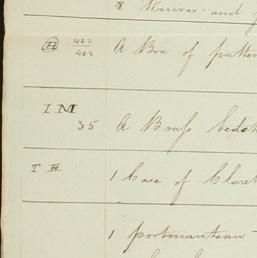 8 Knives and
H 482/483 A Box of
IM
35 A Brass
TH 1 Case of Claret
1 portmanteau